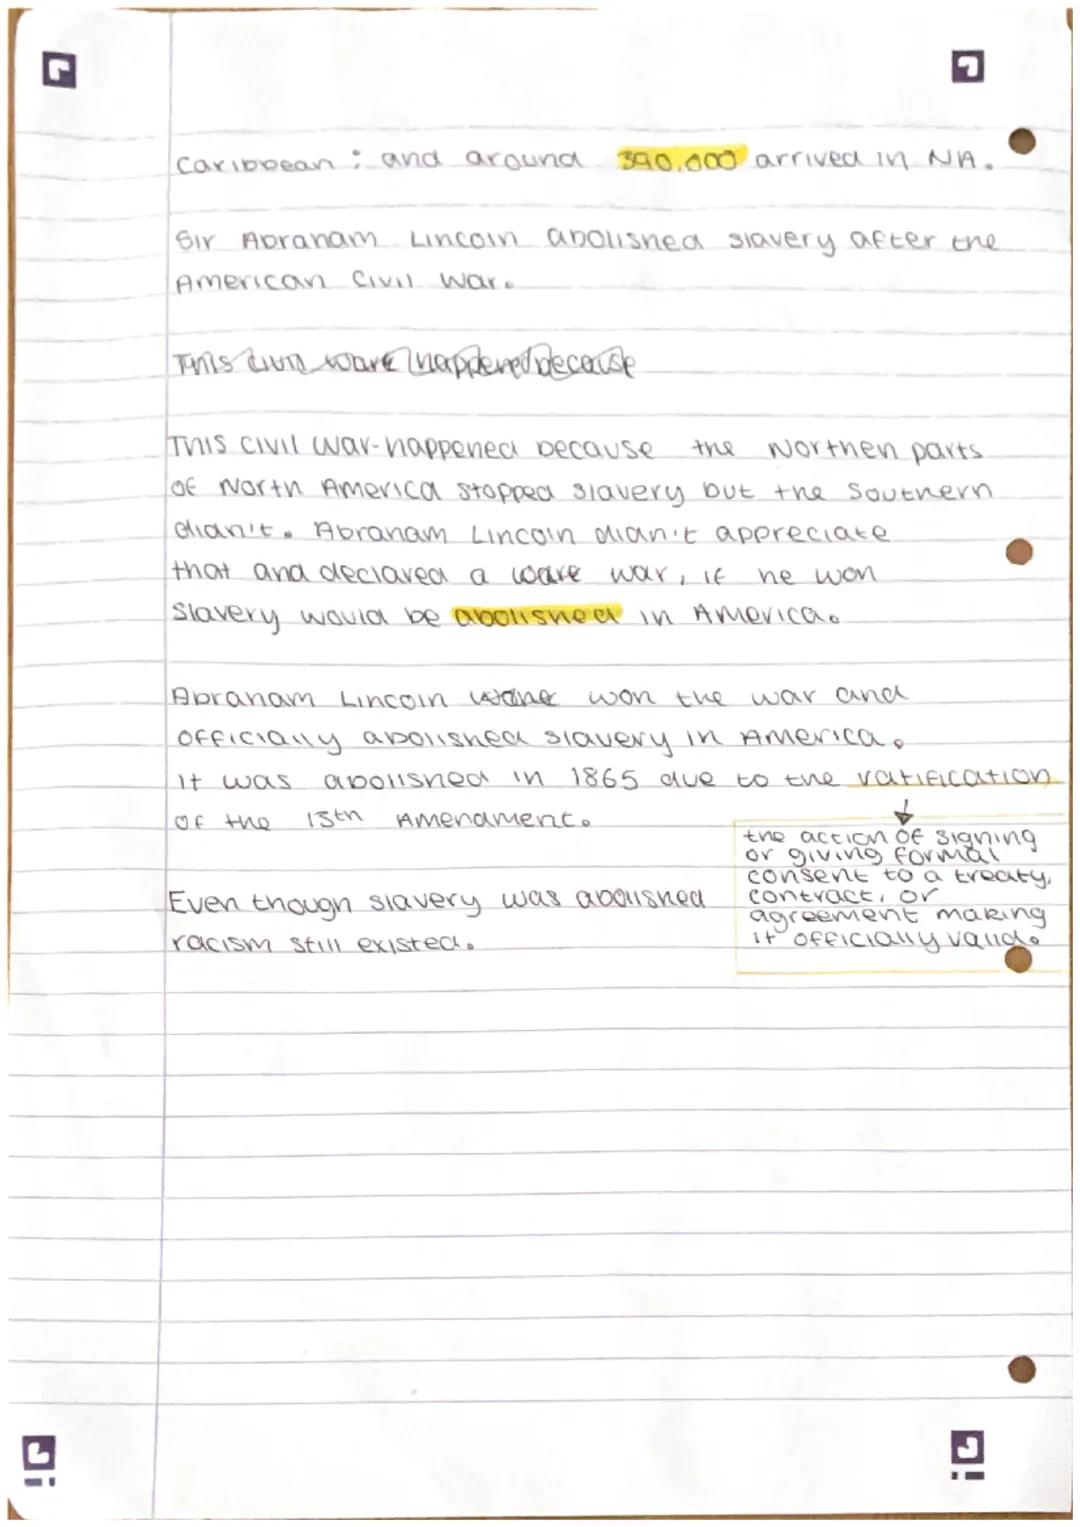 Caribbean; and around 390,000 arrived in NA.
Sir Abraham Lincoln abolished slavery after the
American Civil War.
This civil ware happened because
This civil war-happened because the Northen parts
of North America stopped slavery but the Southern
didn't. Abraham Lincoln didn't appreciate
that and declared a ware war, if he won
slavery would be abolished in America.
Abraham Lincoln won the war and
officially abolished slavery in America.
it was abolished in 1865 due to the ratification
of the 13th Amendment.
the action of signing
or giving formal
consent to a treaty,
contract, or
agreement making
it officially valid.
Even though slavery was abolished
racism still existed.